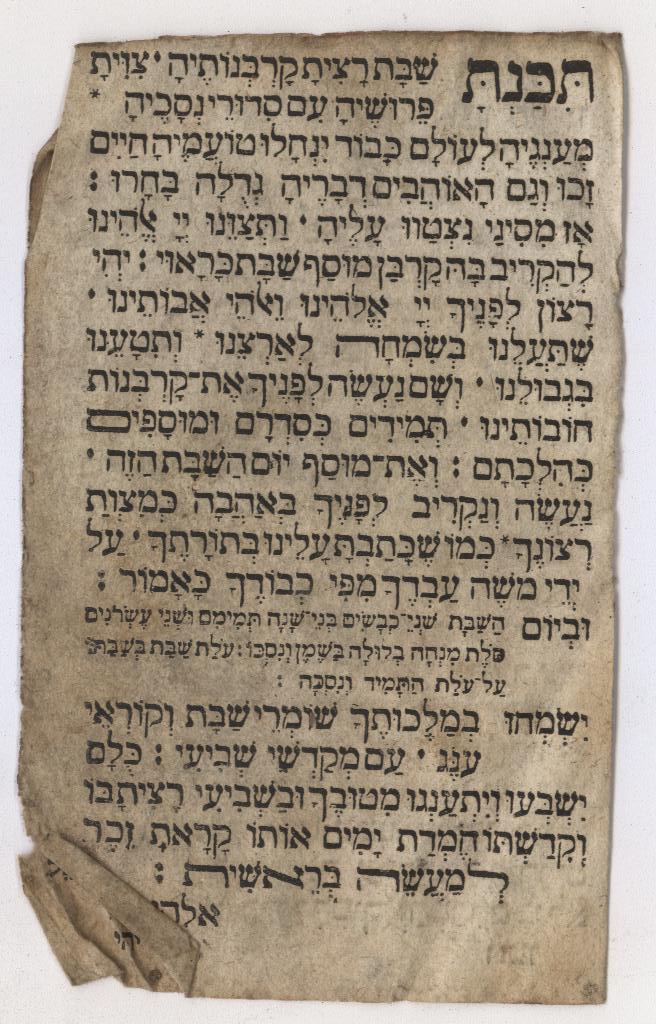 תִּכַּנְתָּ שַׁבָּת רָצִיתָ קָרְבְּנוֹתֶיהָ · צִוִּיתָ
פֵּרוּשֶׁיהָ עִם סִדּוּרֵי נְסָכֶיהָ *
מְעַנְּגֶיהָ לְעוֹלָם כָּבוֹד יִנְחָלוּ טוֹעֲמֶיהָ חַיִּים
זָכוּ וְגַם הָאוֹהֲבִים דְּבָרֶיהָ גְּדֻלָּה בָּחָרוּ :
אָז מִסִּינַי נִצְטַוּוּ עָלֶיהָ · וַתְּצַוֵּנוּ יְיָ אֱלֹהֵינוּ
לְהַקְרִיב בָּהּ קָרְבַּן מוּסַף שַׁבָּת כָּרָאוּי : יְהִי
רָצוֹן לְפָנֶיךָ יְיָ אֱלֹהֵינוּ וֵאלֹהֵי אֲבוֹתֵינוּ ·
שֶׁתַּעֲלֵנוּ בְשִׂמְחָה לְאַרְצֵנוּ * וְתִטָּעֵנוּ
בִּגְבוּלֵנוּ · וְשָׁם נַעֲשֶׂה לְפָנֶיךָ אֶת־קָרְבְּנוֹת
חוֹבוֹתֵינוּ · תְּמִידִים כְּסִדְרָם וּמוּסָפִים
כְּהִלְכָתָם : וְאֶת־מוּסַף יוֹם הַשַּׁבָּת הַזֶּה ·
נַעֲשֶׂה וְנַקְרִיב לְפָנֶיךָ בְּאַהֲבָה כְּמִצְוַת
רְצוֹנֶךָ * כְּמוֹ שֶׁכָּתַבְתָּ עָלֵינוּ בְּתוֹרָתֶךָ · עַל
יְדֵי מֹשֶׁה עַבְדֶּךָ מִפִּי כְבוֹדֶךָ כָּאָמוּר :
וּבְיוֹם הַשַּׁבָּת שְׁנֵי־כְבָשִׂים בְּנֵי־שָׁנָה תְּמִימִם וּשְׁנֵי עֶשְׂרֹנִים
סֹלֶת מִנְחָה בְּלוּלָה בַשֶּׁמֶן וְנִסְכּוֹ : עֹלַת שַׁבַּת בְּשַׁבַּתּוֹ
עַל־עֹלַת הַתָּמִיד וְנִסְכָּהּ :
יִשְׂמְחוּ בְמַלְכוּתְךָ שׁוֹמְרֵי שַׁבָּת וְקוֹרְאֵי
עֹנֶג · עַם מְקַדְּשֵׁי שְׁבִיעִי : כֻּלָּם
יִשְׂבְּעוּ וְיִתְעַנְּגוּ מִטּוּבֶךָ וּבַשְּׁבִיעִי רָצִיתָ בּוֹ
וְקִדַּשְׁתּוֹ חֶמְדַּת יָמִים אוֹתוֹ קָרָאתָ זֵכֶר
לְמַעֲשֵׂה בְרֵאשִׁית :
יהי